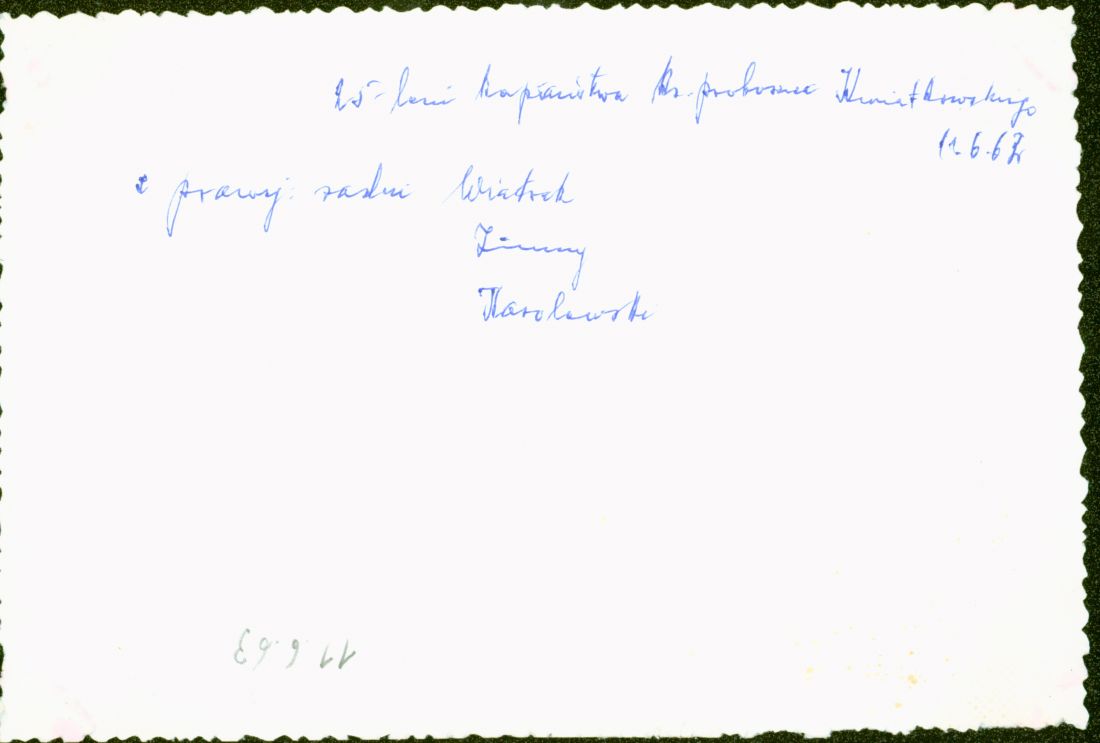 25-leci kapłaństwa ks. proboszcza Kwiatkowskiego
11.6.63
z prawej: radni Wiatrak
Zimny
Karolewski
11 6.63